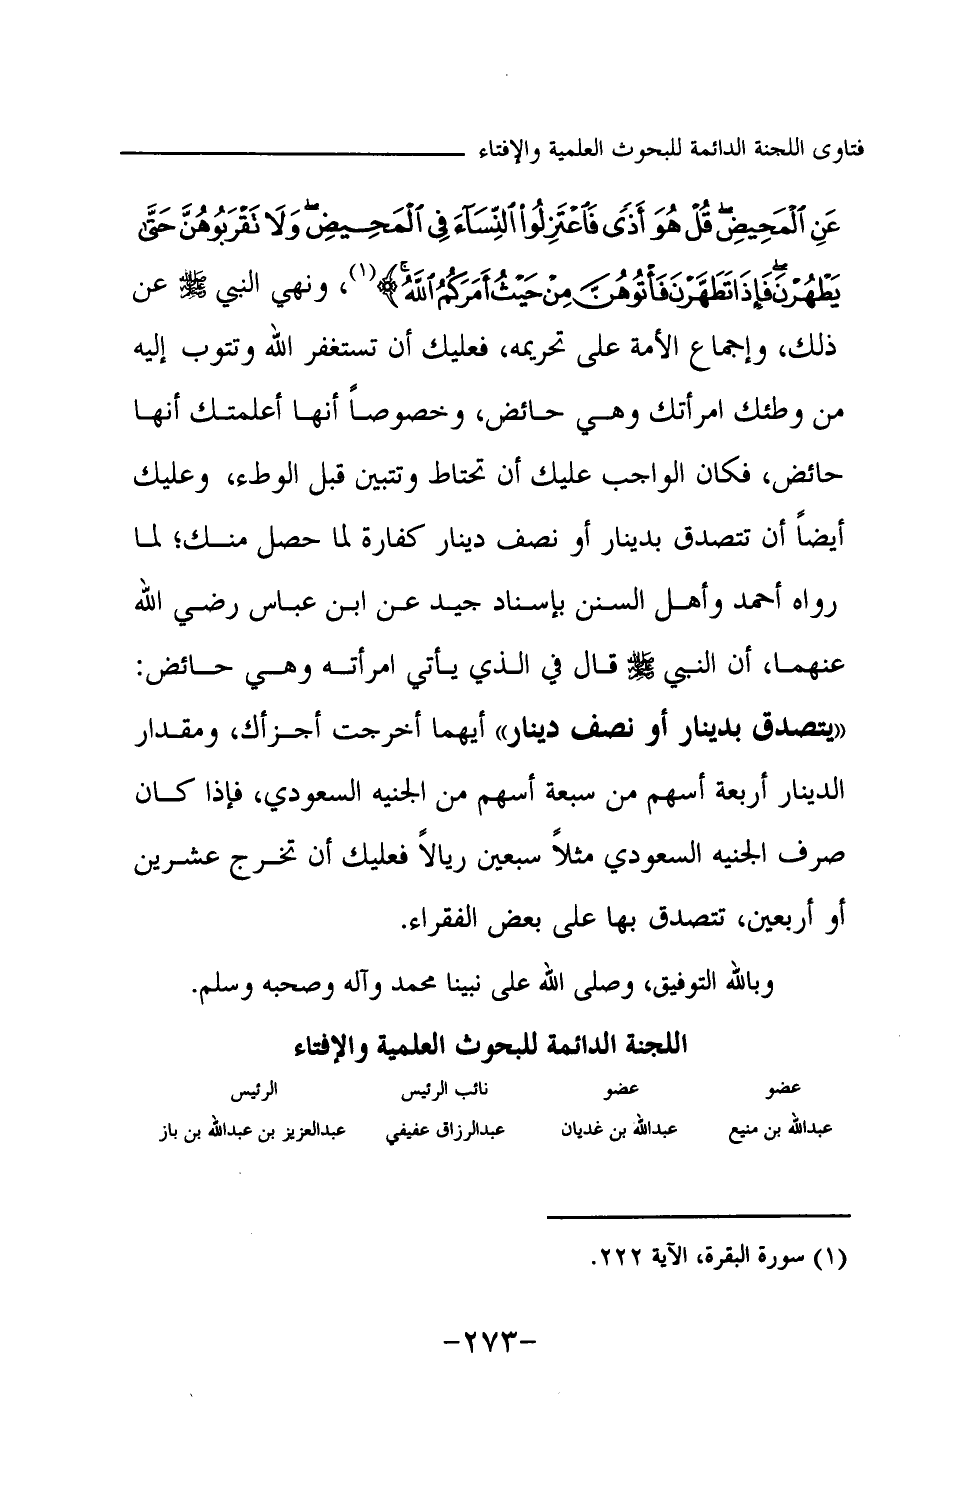 فتاوى اللجنة الدائمة للبحوث العلمية والإفتاء
عَنِ ٱلۡمَحِيضِۖ قُلۡ هُوَ أَذٗى فَٱعۡتَزِلُواْ ٱلنِّسَآءَ فِي ٱلۡمَحِيضِۖ وَلَا تَقۡرَبُوهُنَّ حَتَّىٰ
يَطۡهُرۡنَۖ فَإِذَا تَطَهَّرۡنَ فَأۡتُوهُنَّ مِنۡ حَيۡثُ أَمَرَكُمُ ٱللَّهُۚ﴾(١)، ونهي النبي ﷺ عن
ذلك، وإجماع الأمة على تحريمه، فعليك أن تستغفر الله وتتوب إليه
من وطئك امرأتك وهي حائض، وخصوصاً أنها أعلمتك أنها
حائض، فكان الواجب عليك أن تحتاط وتتبين قبل الوطء، وعليك
أيضاً أن تتصدق بدينار أو نصف دينار كفارة لما حصل منك؛ لما
رواه أحمد وأهل السنن بإسناد جيد عن ابن عباس رضي الله
عنهما، أن النبي ﷺ قال في الذي يأتي امرأته وهي حائض:
«يتصدق بدينار أو نصف دينار» أيهما أخرجت أجزأك، ومقدار
الدينار أربعة أسهم من سبعة أسهم من الجنيه السعودي، فإذا كان
صرف الجنيه السعودي مثلاً سبعين ريالاً فعليك أن تخرج عشرين
أو أربعين، تتصدق بها على بعض الفقراء.
وبالله التوفيق، وصلى الله على نبينا محمد وآله وصحبه وسلم.
اللجنة الدائمة للبحوث العلمية والإفتاء
عضو عضو نائب الرئيس الرئيس
عبدالله بن منيع عبدالله بن غديان عبدالرزاق عفيفي عبدالعزيز بن عبدالله بن باز
(١) سورة البقرة، الآية ٢٢٢.
-٢٧٣-